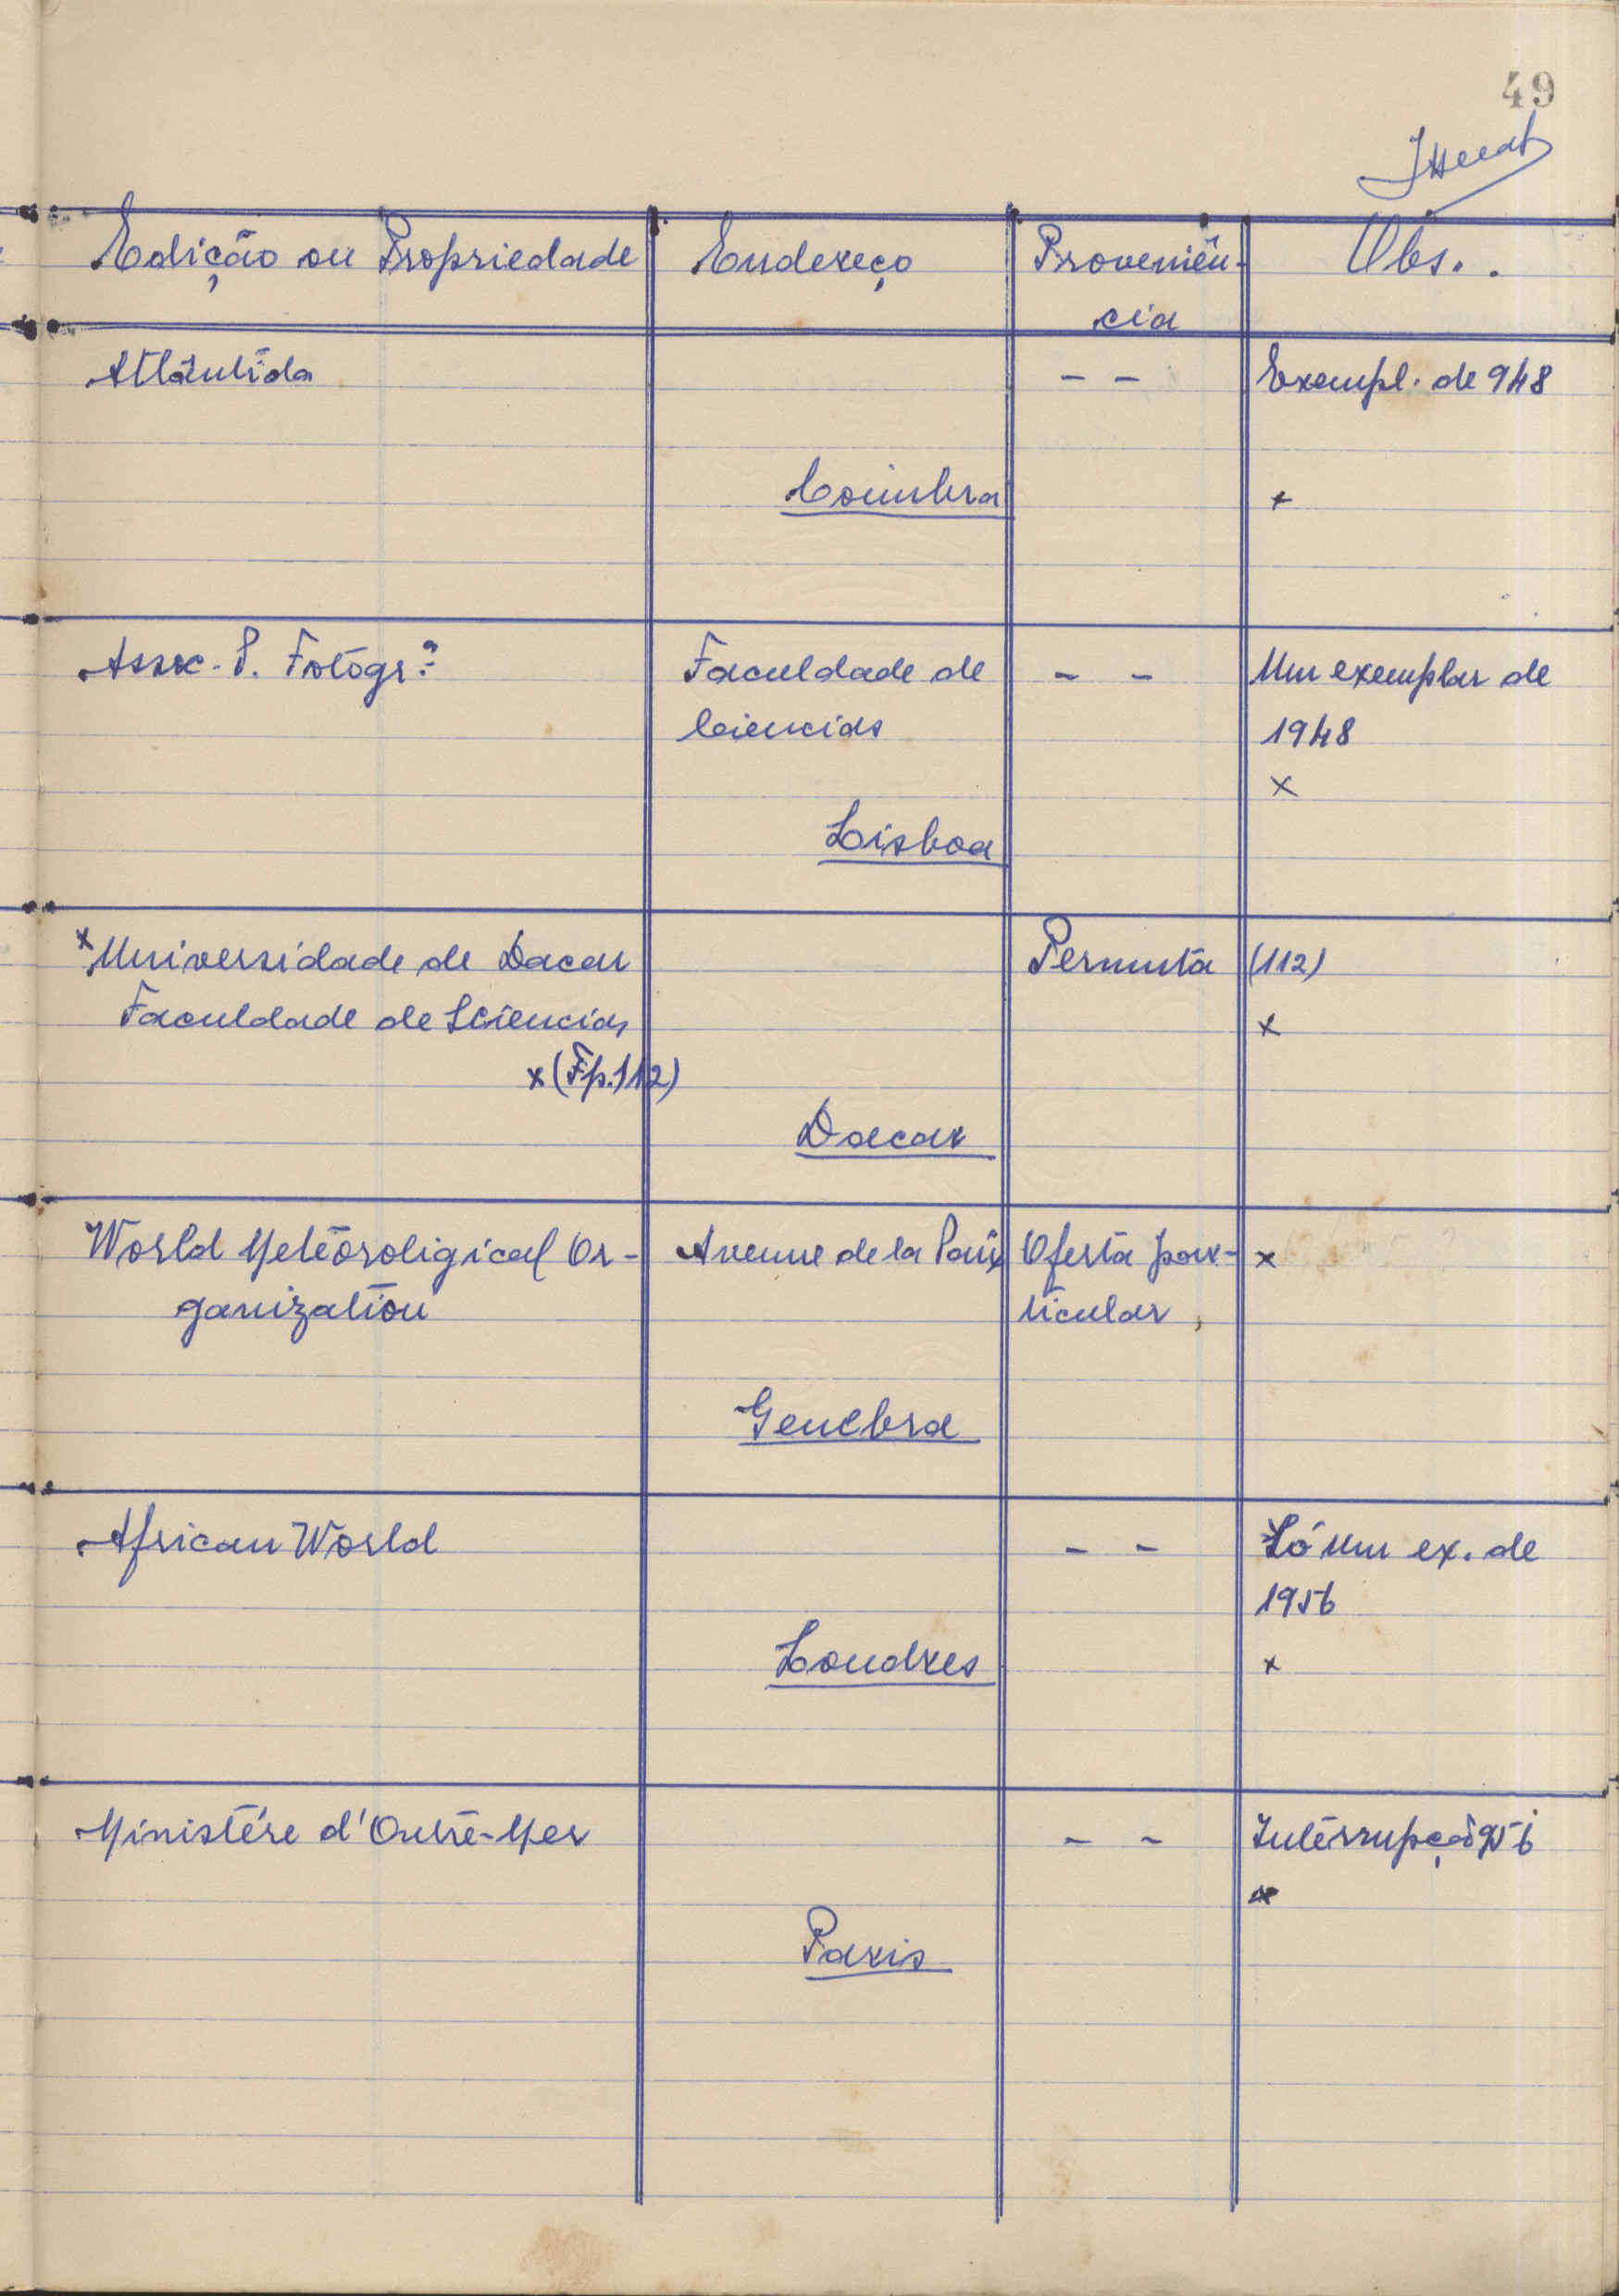 49
Edição ou Propriedade Endereço Proveniên- Obs..
cia
Atlântida - - Exempl. de 948
Coimbra x
Assoc. P. Fotogr.ª Faculdade de - - Um exemplar de
Ciencias 1948
x
Lisboa
x Universidade de Dacar Permuta (112)
Faculdade de Sciencias x
x (Fp. 112)
Dacar
World Meteoroligical Or- Avenue de la Paix Oferta par- x
ganization ticular,
Genebra
African World - - Só um ex. de
1956
Londres x
Ministére d'Outre-Mer - - Interrupção 956
x
Paris